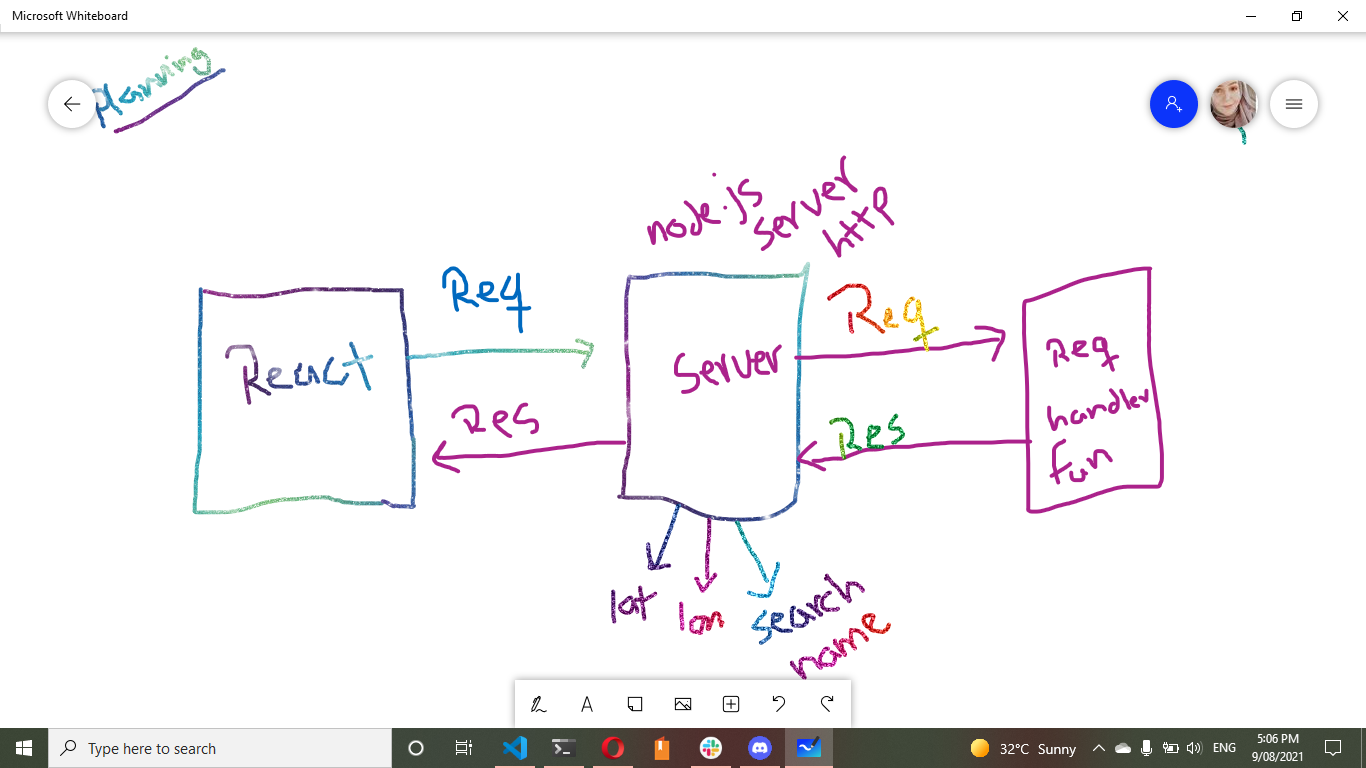 Microsoft Whiteboard
Planning
node.js
server
http
Req
Req
React
Server
Req
handler
fun
Res
Res
lat
lon
search
name
A
Type here to search
32°C Sunny
ENG
5:06 PM
9/08/2021